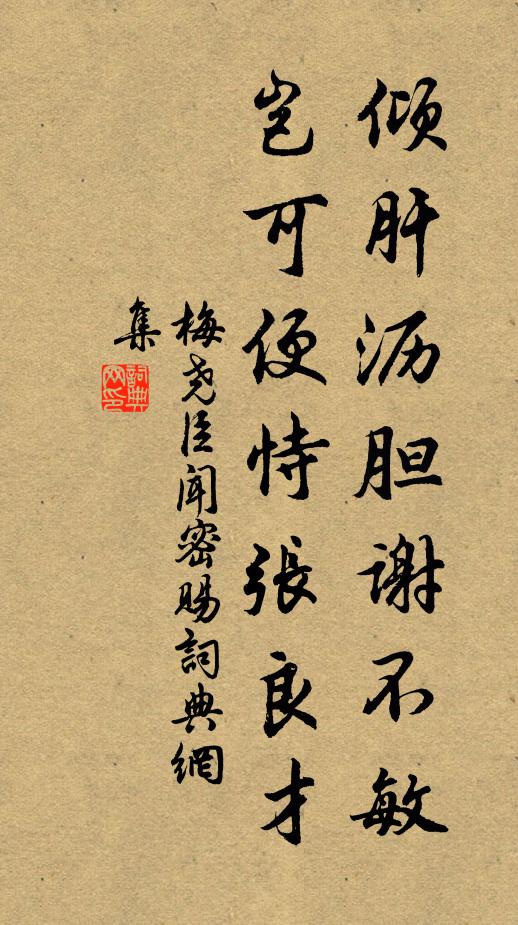 倾肝沥胆谢不敏
岂可便恃張良才
梅尧臣闻密赐詞典網
集
詞典
网印